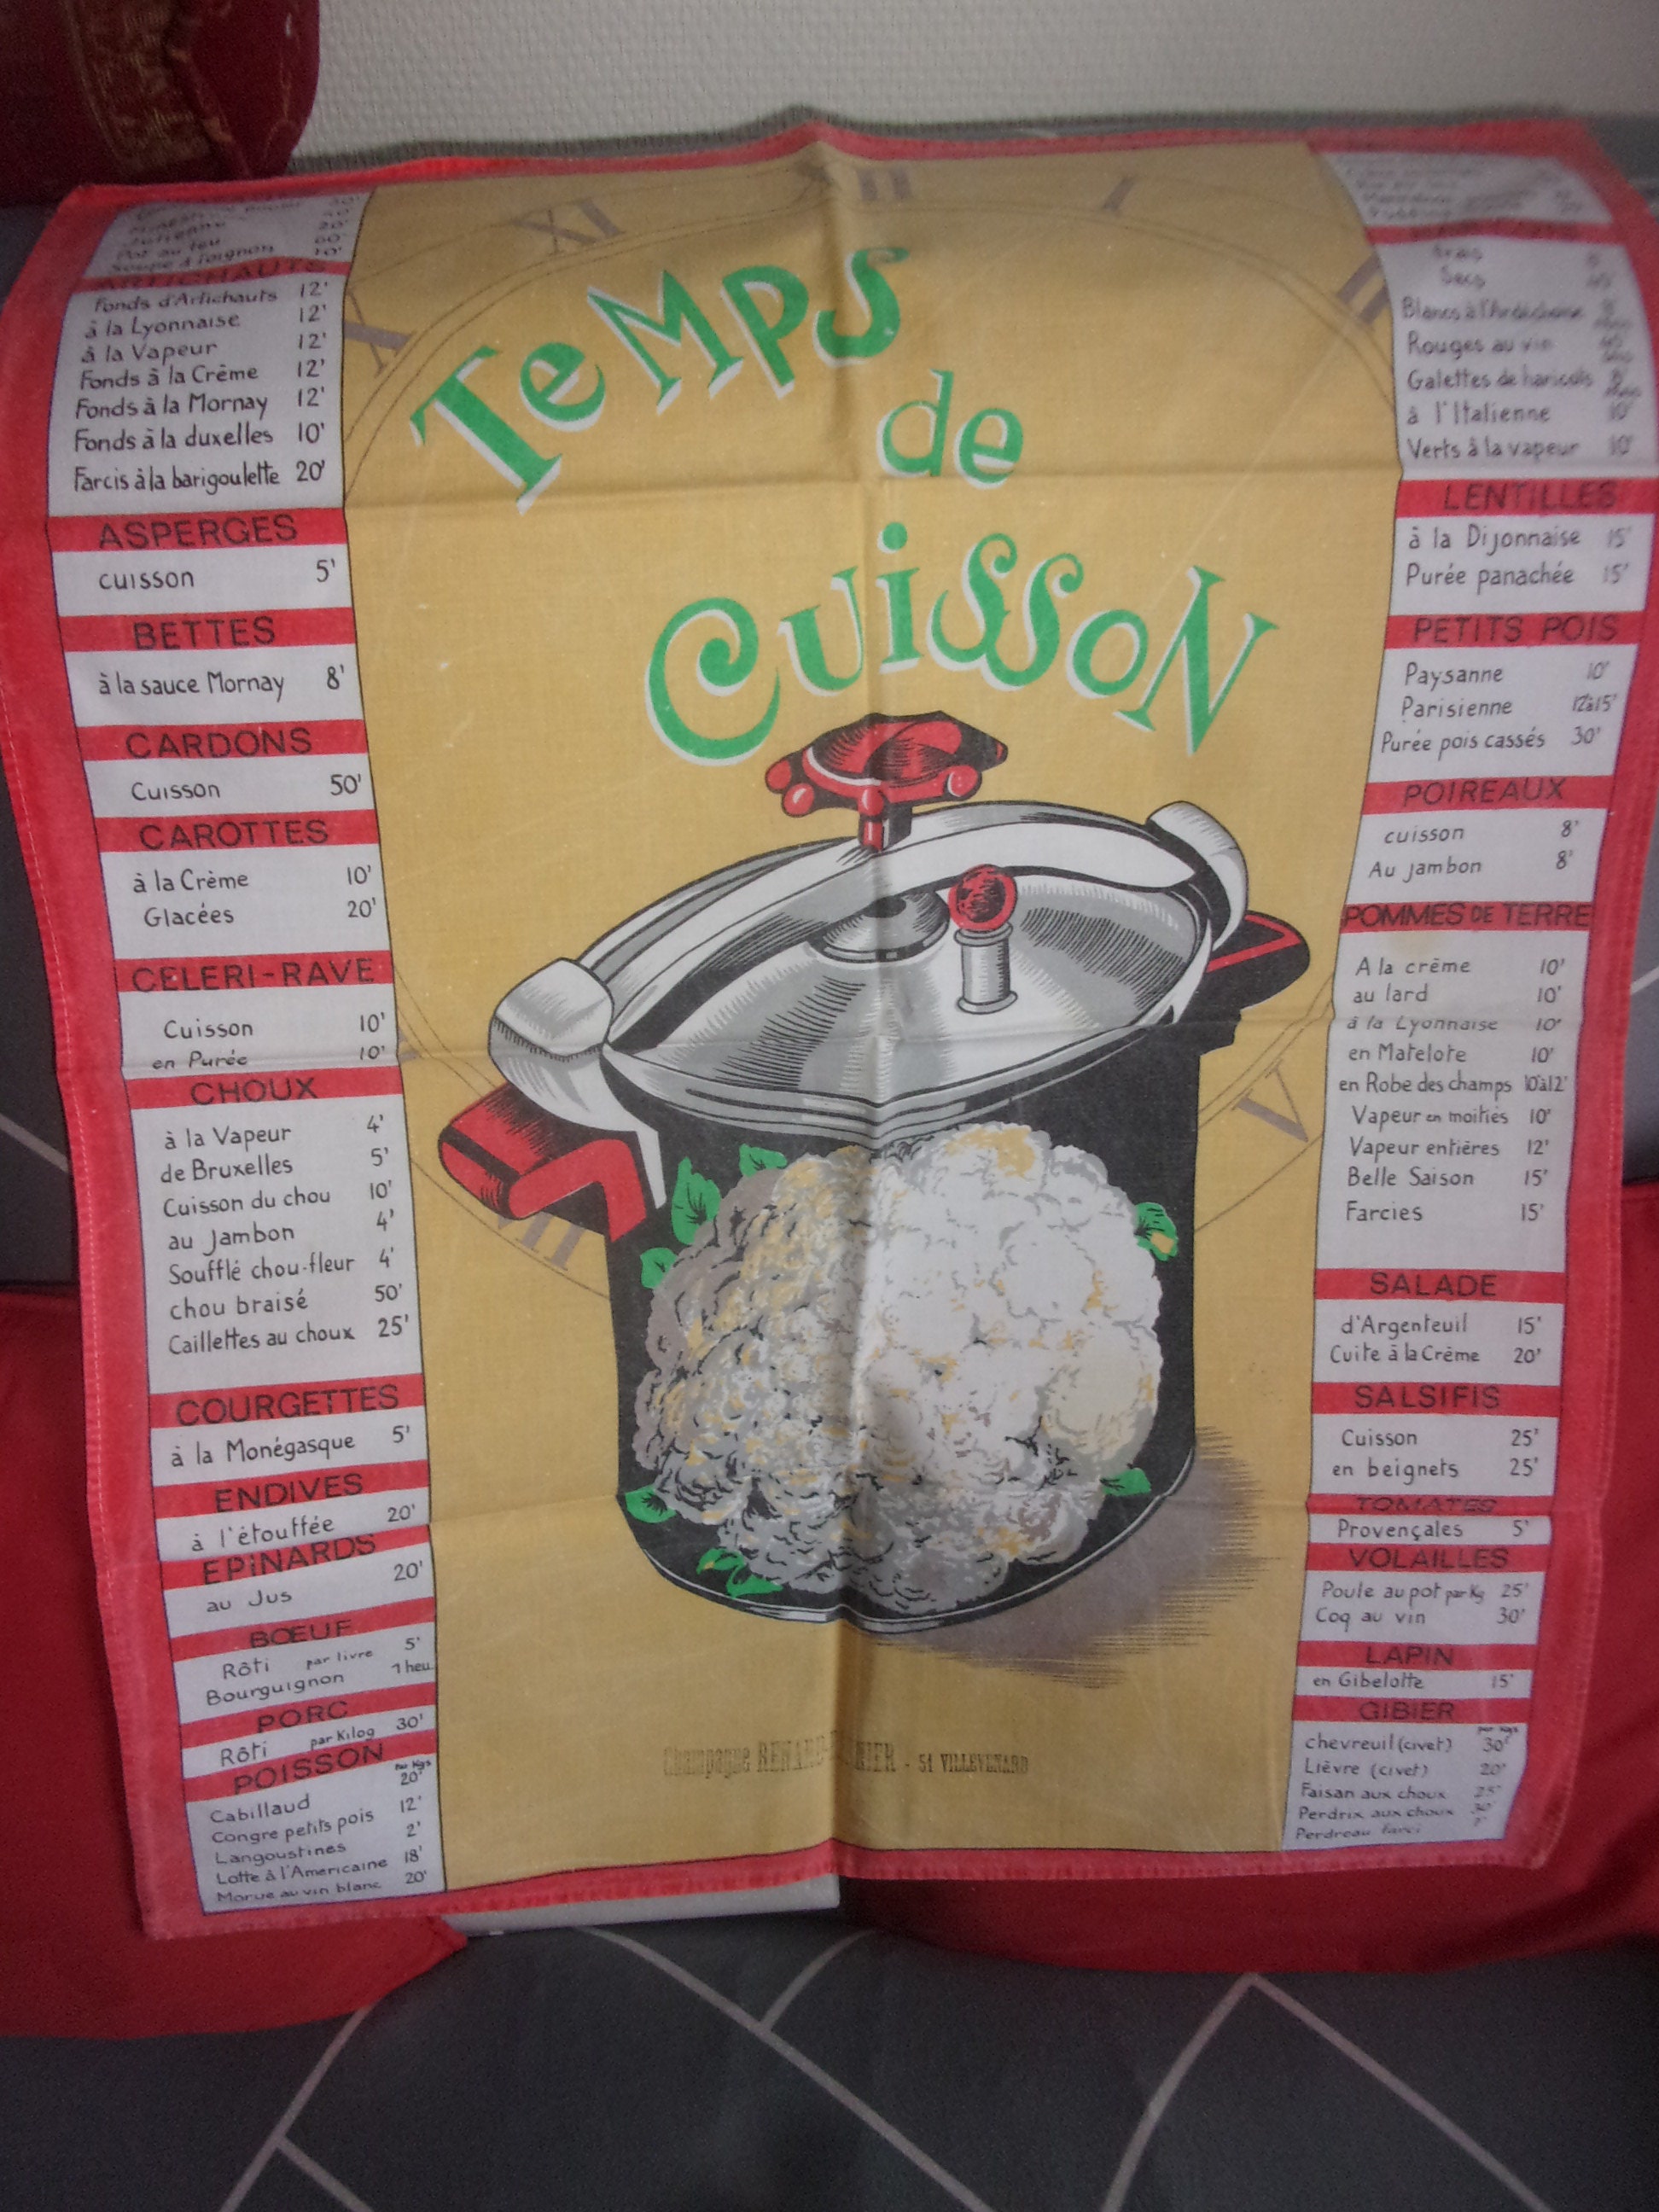 Julienne 20'
Pot au feu 60'
Soupe à l'oignon 10'
ARTICHAUTS
Fonds d'Artichauts 12'
à la Lyonnaise 12'
à la Vapeur 12'
Fonds à la Crème 12'
Fonds à la Mornay 12'
Fonds à la duxelles 10'
Farcis à la barigoulette 20'
ASPERGES
cuisson 5'
BETTES
à la sauce Mornay 8'
CARDONS
Cuisson 50'
CAROTTES
à la Crème 10'
Glacées 20'
CELERI-RAVE
Cuisson 10'
en Purée 10'
CHOUX
à la Vapeur 4'
de Bruxelles 5'
Cuisson du chou 10'
au Jambon 4'
Soufflé chou-fleur 4'
chou braisé 50'
Caillettes au choux 25'
COURGETTES
à la Monégasque 5'
ENDIVES
à l'étouffée 20'
EPINARDS
au Jus 20'
BŒUF
Rôti par livre 5'
Bourguignon 1 heu
PORC
Rôti par Kilog 30'
POISSON
par Kgs
Cabillaud 20'
Congre petits pois 12'
Langoustines 2'
Lotte à l'Americaine 18'
Morue au vin blanc 20'
XI XII I
X II
Temps
de
Cuisson
V
VII
Champagne - 51 VILLEVENARD
Secs
Blancs à l'Ardéchoise
Rouges au vin
Galettes de haricots
à l'Italienne 10'
Verts à la vapeur 10'
LENTILLES
à la Dijonnaise 15'
Purée panachée 15'
PETITS POIS
Paysanne 10'
Parisienne 12à15'
Purée pois cassés 30'
POIREAUX
cuisson 8'
Au jambon 8'
POMMES DE TERRE
A la crème 10'
au lard 10'
à la Lyonnaise 10'
en Matelote 10'
en Robe des champs 10'à12'
Vapeur en moitiés 10'
Vapeur entières 12'
Belle Saison 15'
Farcies 15'
SALADE
d'Argenteuil 15'
Cuite à la Crème 20'
SALSIFIS
Cuisson 25'
en beignets 25'
TOMATES
Provençales 5'
VOLAILLES
Poule au pot par Kg 25'
Coq au vin 30'
LAPIN
en Gibelotte 15'
GIBIER
par Kgs
chevreuil (civet) 30'
Lièvre (civet) 20'
Faisan aux choux 25'
Perdrix aux choux 30'
Perdreau farci